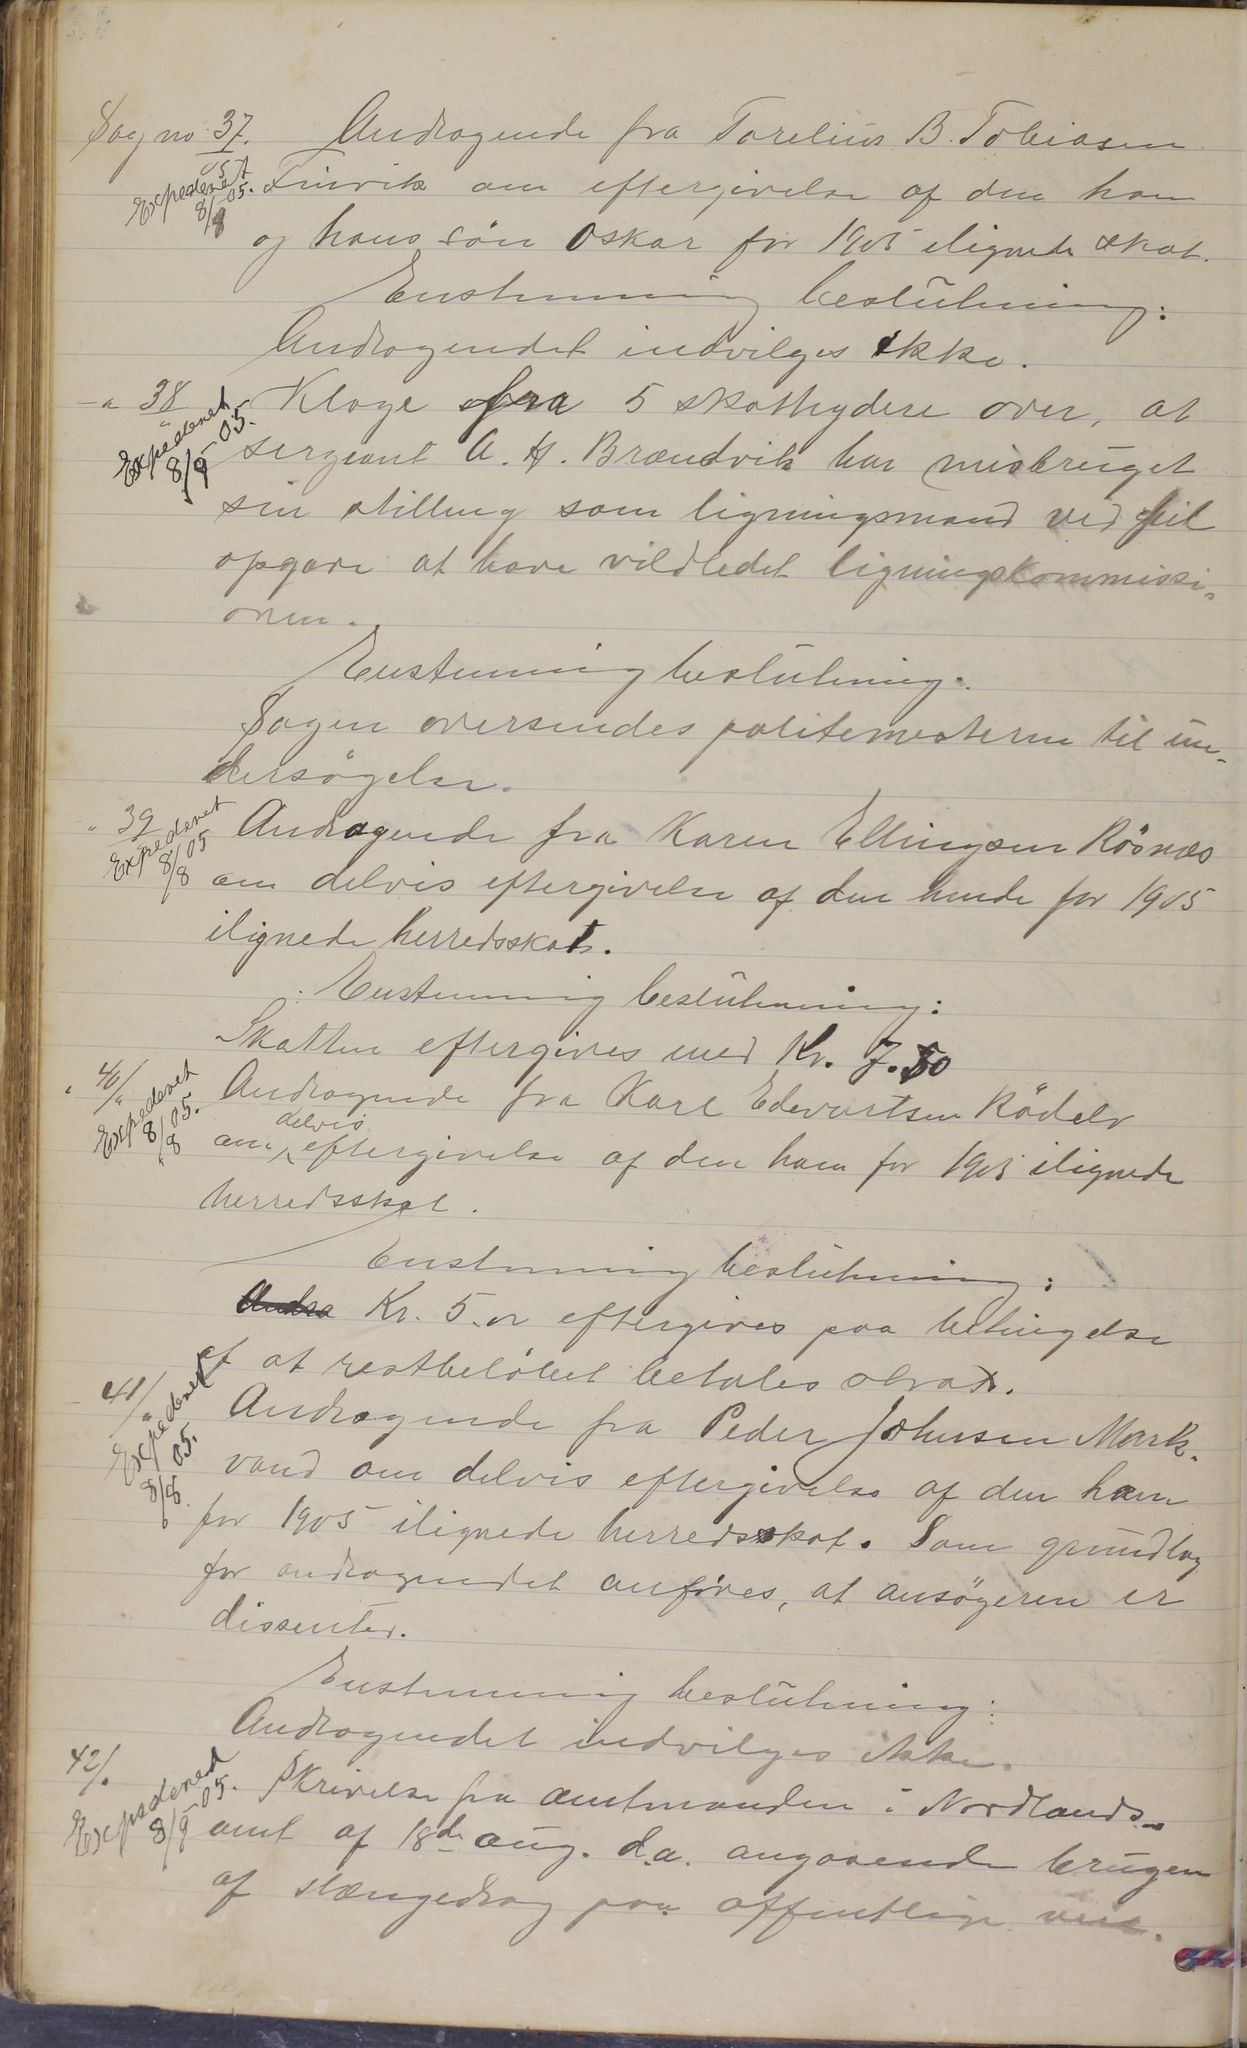 Sag no. 37. Andragende fra Torelius B. Tobiasen
Expederet 8/8 05. Finvik om eftergivelse af den ham
og hans søn Oskar for 1905 ilignede skat.
Enstemmig beslutning:
Andragendet indvilges ikke.
-"- 38 Klage fra 5 skattydere over, at
Expederet 8/9 05. sergeant A. H. Brændvik har misbruget
sin stilling som ligningsmand ved feil
opgave at have vildledet ligningskommissi-
onen.
Enstemmig beslutning:
Sagen oversendes politimesteren til un-
dersøgelse.
" 39 Andragende fra Karen Ellingsen Røsnes
Expederet 8/8 05 om delvis eftergivelse af den hende for 1905
ilignede herredsskat.
Enstemmig beslutning:
Skatten eftergives med Kr. 7.50
" 40/" Andragende fra Karl Edvartsen Rødelv
Expederet 8/8 05. om delvis eftergivelse af den ham for 1905 ilignede
herredsskat.
Enstemmig beslutning:
Andra Kr. 5.00 eftergives paa betingelse
af at restbeløbet betales strax.
- 41/" Andragende fra Peder Johnsen Mark-
Expederet 8/8 05. vand om delvis eftergivelse af den ham
for 1905 ilignede herredsskat. Som grundlag
for andragendet anføres, at ansøgeren er
dissenter.
Enstemmig beslutning:
Andragendet indvilges ikke.
42/. Skrivelse fra amtmanden i Nordlands
Expederet 8/9 05. amt af 18de aug. d.a. angaaende brugen
af slængedrag paa offentlige veie.